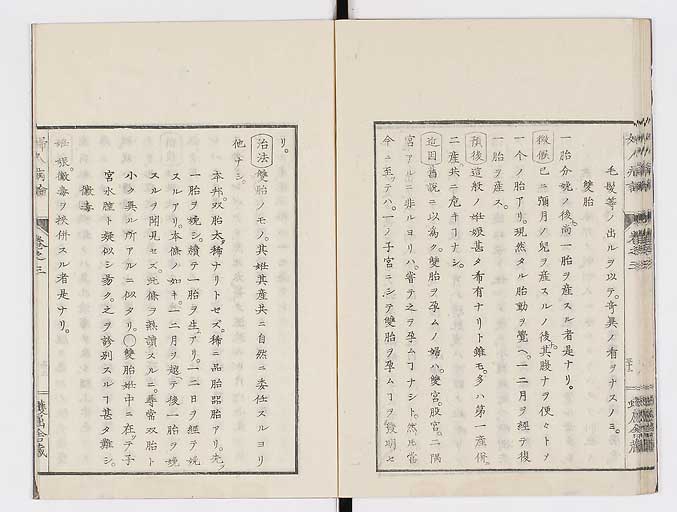 毛髮等ノ出ルヲ以テ。奇異ノ看ヲナスノミ。
雙胎
一胎分娩ノ後。尚一胎ヲ産スル者是ナリ。
徴候 已ニ彌月ノ兒ヲ産スルノ後。其腹ナヲ便々トメ
一个ノ胎アリ。現然タル胎動ヲ覺ヘ。一二月ヲ經テ後
一胎ヲ産ス。
預後 這般ノ妊娠甚タ希有ナリト雖モ。多ハ第一産併
二産共ニ危キヿナシ。
近因 舊説ニ以為ク。雙胎ヲ孕ムノ婦ハ。雙宮。股宮。二隅
宮アルニ非ルヨリハ。嘗テ之ヲ孕ムヿナシト。然圧當
今ニ至テハ。一ノ子宮ニシテ雙胎ヲ孕ムヿヲ發明セ
リ。
治法 雙胎ノモノ。其妊其産共ニ自然ニ委任スルヨリ
他ナシ。
本邦。双胎太稀ナリトセズ。稀ニ品胎品胎アリ。先
一胎ヲ娩シ。續テ一胎ヲ生アリ。一二日ヲ經テ娩
スルアリ。本條ノ如キ。一二月ヲ超テ後一胎ヲ娩
スルヲ聞見セズ。此條ヲ熟讀スルニ。尋常双胎ト
小ク異ル所アルニ似タリ。○雙胎妊中ニ在テ子
宮水腫ト疑似シ易ク。之ヲ診別スルヿ甚タ難シ。
黴毒
妊娠。黴毒ヲ挾併スル者是ナリ。
婦人病論
卷之三